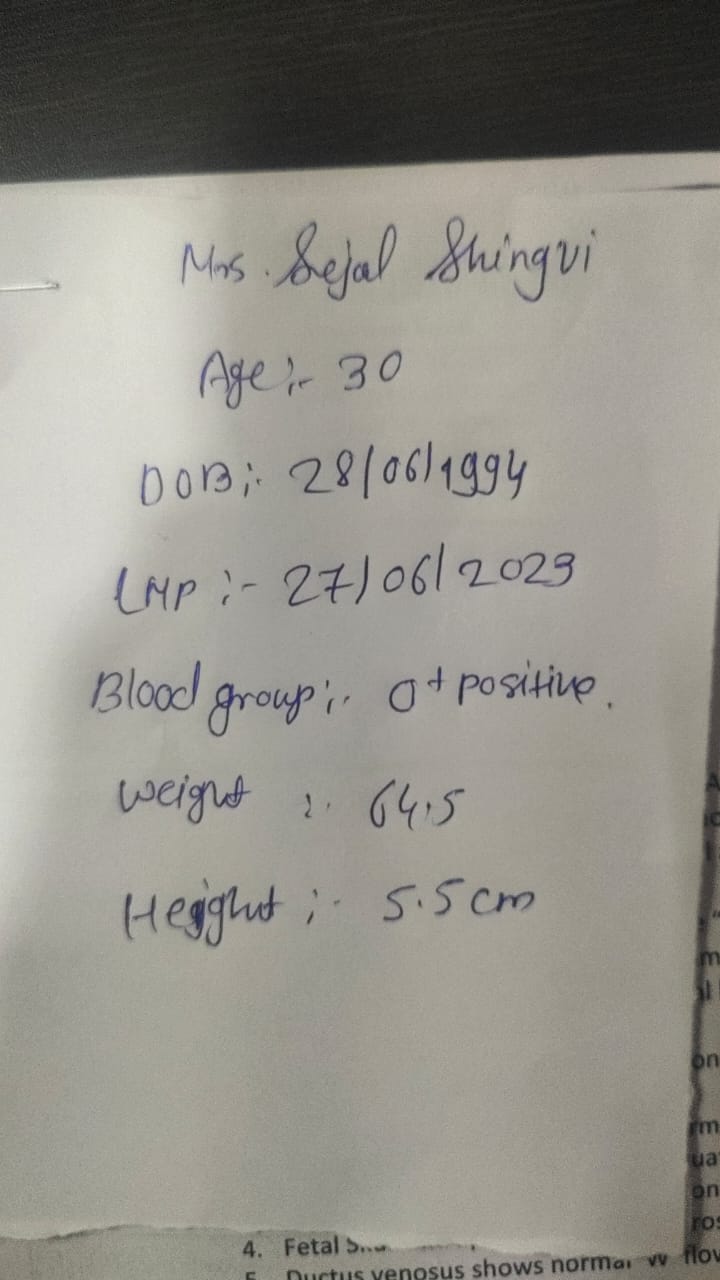 Mrs. Sejal Shingvi
Age :- 30
DOB :- 28/06/1994
LMP :- 27/06/2023
Blood group :- O+ positive.
Weight :- 64.5
Heigght :- 5.5 cm
4. Fetal
5. Ductus venosus shows normal flow